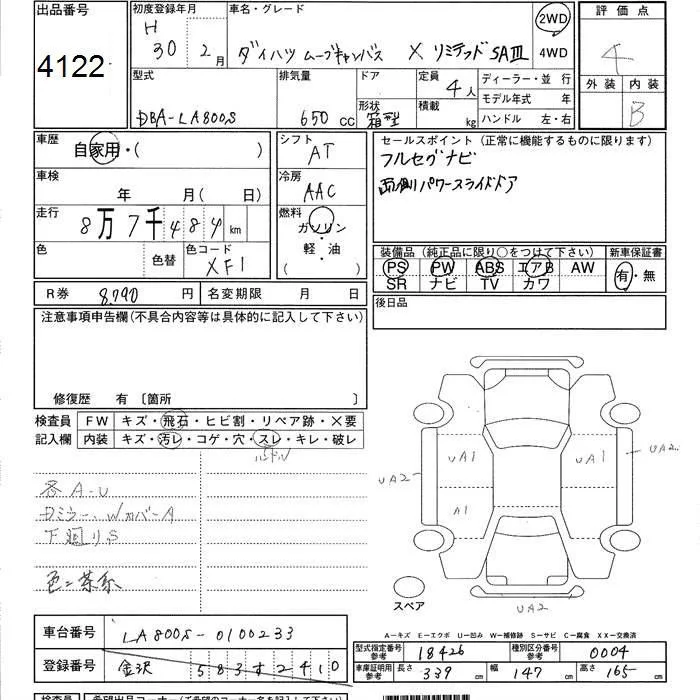 出品番号 4122
初度登録年月 H 30 2月
車名・グレード ダイハツ ムーブキャンバス X リミテッド SAⅢ
2WD 4WD
評価点 4
外装 内装 B
型式 DBA-LA800S
排気量 650 cc
ドア
形状 箱型
定員 4人
積載 kg
ディーラー・並行
モデル年式 年
ハンドル 左・右
車歴 自家用・( )
シフト AT
セールスポイント (正常に機能するものに限ります)
フルセグナビ
両側パワースライドドア
車検 年 月( 日)
冷房 AAC
走行 8万7千484km
燃料 ガソリン・軽・油 ( )
色 色替
色コード XF1
装備品 (純正品に限り○をつけて下さい)
新車保証書 有・無
PS PW ABS エアB AW
SR ナビ TV カワ
R券 8,790円
名変期限 月 日
後日品
注意事項申告欄(不具合内容等は具体的に記入して下さい)
修復歴 有 〔箇所 〕
検査員記入欄
FW キズ・飛石・ヒビ割・リペア跡・X要
内装 キズ・汚レ・コゲ・穴・スレ・キレ・破レ
ハンドル
各A-U
Dミラー、WカバーA
下廻りS
色=茶系
UA2 UA1 UA1 UA2
A1
UA2
スペア
A-キズ E-エクボ U-凹み W-補修跡 S-サビ C-腐食 XX-交換済
車台番号 LA800S-0100233
登録番号 金沢 583す2410
型式指定番号 参考 18426
種別区分番号 参考 0004
車庫証明用 参考 長さ 339 幅 147 高さ 165 cm
検査員 希望出品コーナー(ご希望のコーナー名を記入下さい)